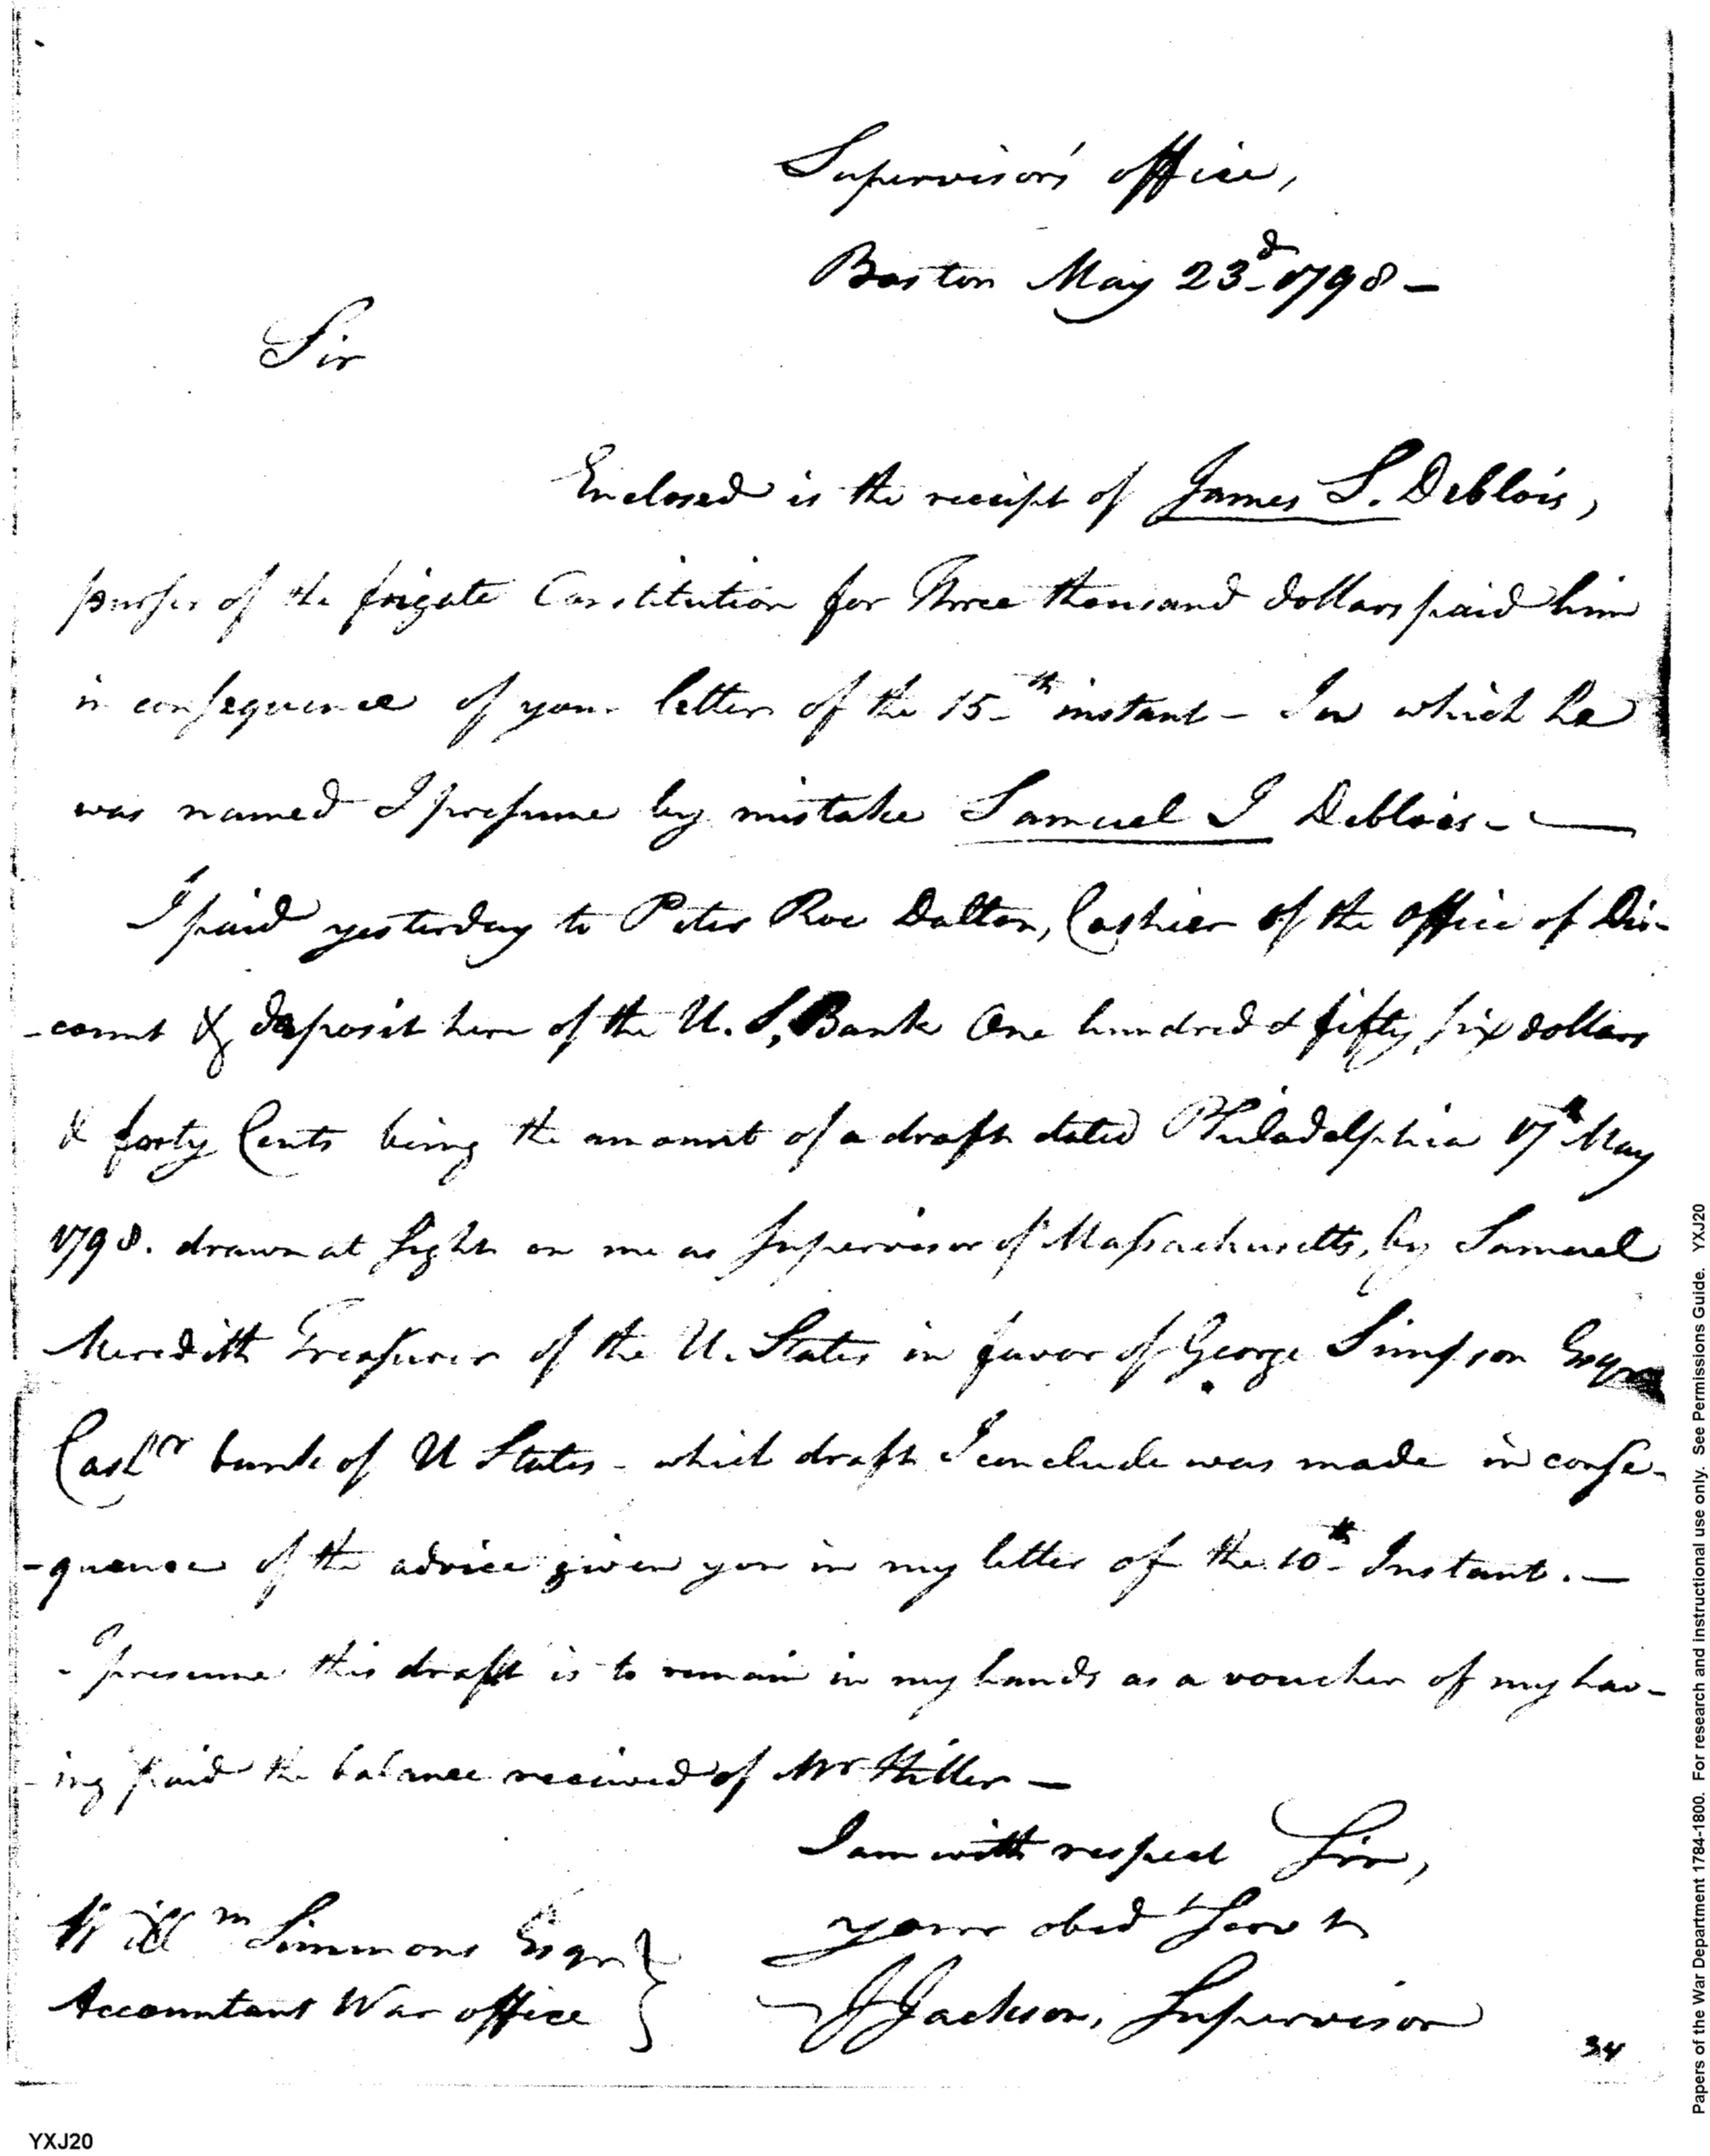 Supervisor's office,
Boston May 23d 1798 -
Sir
Enclosed is the receipt of James S. Deblois,
purser of the frigate Constitution for Three thousand dollars paid him
in consequence of your letter of the 15th instant - In which he
was named I presume by mistake Samuel J Deblois - —
I paid yesterday to Peter Roe Dalton, Cashier of the office of Dis-
-count & deposit here of the U. S, Bank One hundred & fifty six dollars
& forty Cents being the amount of a draft dated Philadelphia 17th May
1798. drawn at sight on me as Supervisor of Massachusetts, by Samuel
Meredith Treasurer of the U. States in favor of George Simpson Esqr
Cashr bank of U States - which draft I conclude was made in conse-
-quence of the advice given you in my letter of the 10th Instant. —
- I presume this draft is to remain in my hands as a voucher of my hav-
-ing paid the balance received of Mr Hiller —
I am with respect Sir,
your obedt Servt
J Jackson, Supervisor
Willm Simmons Esqr
Accountant War office
34
YXJ20
Papers of the War Department 1784-1800. For research and instructional use only. See Permissions Guide. YXJ20